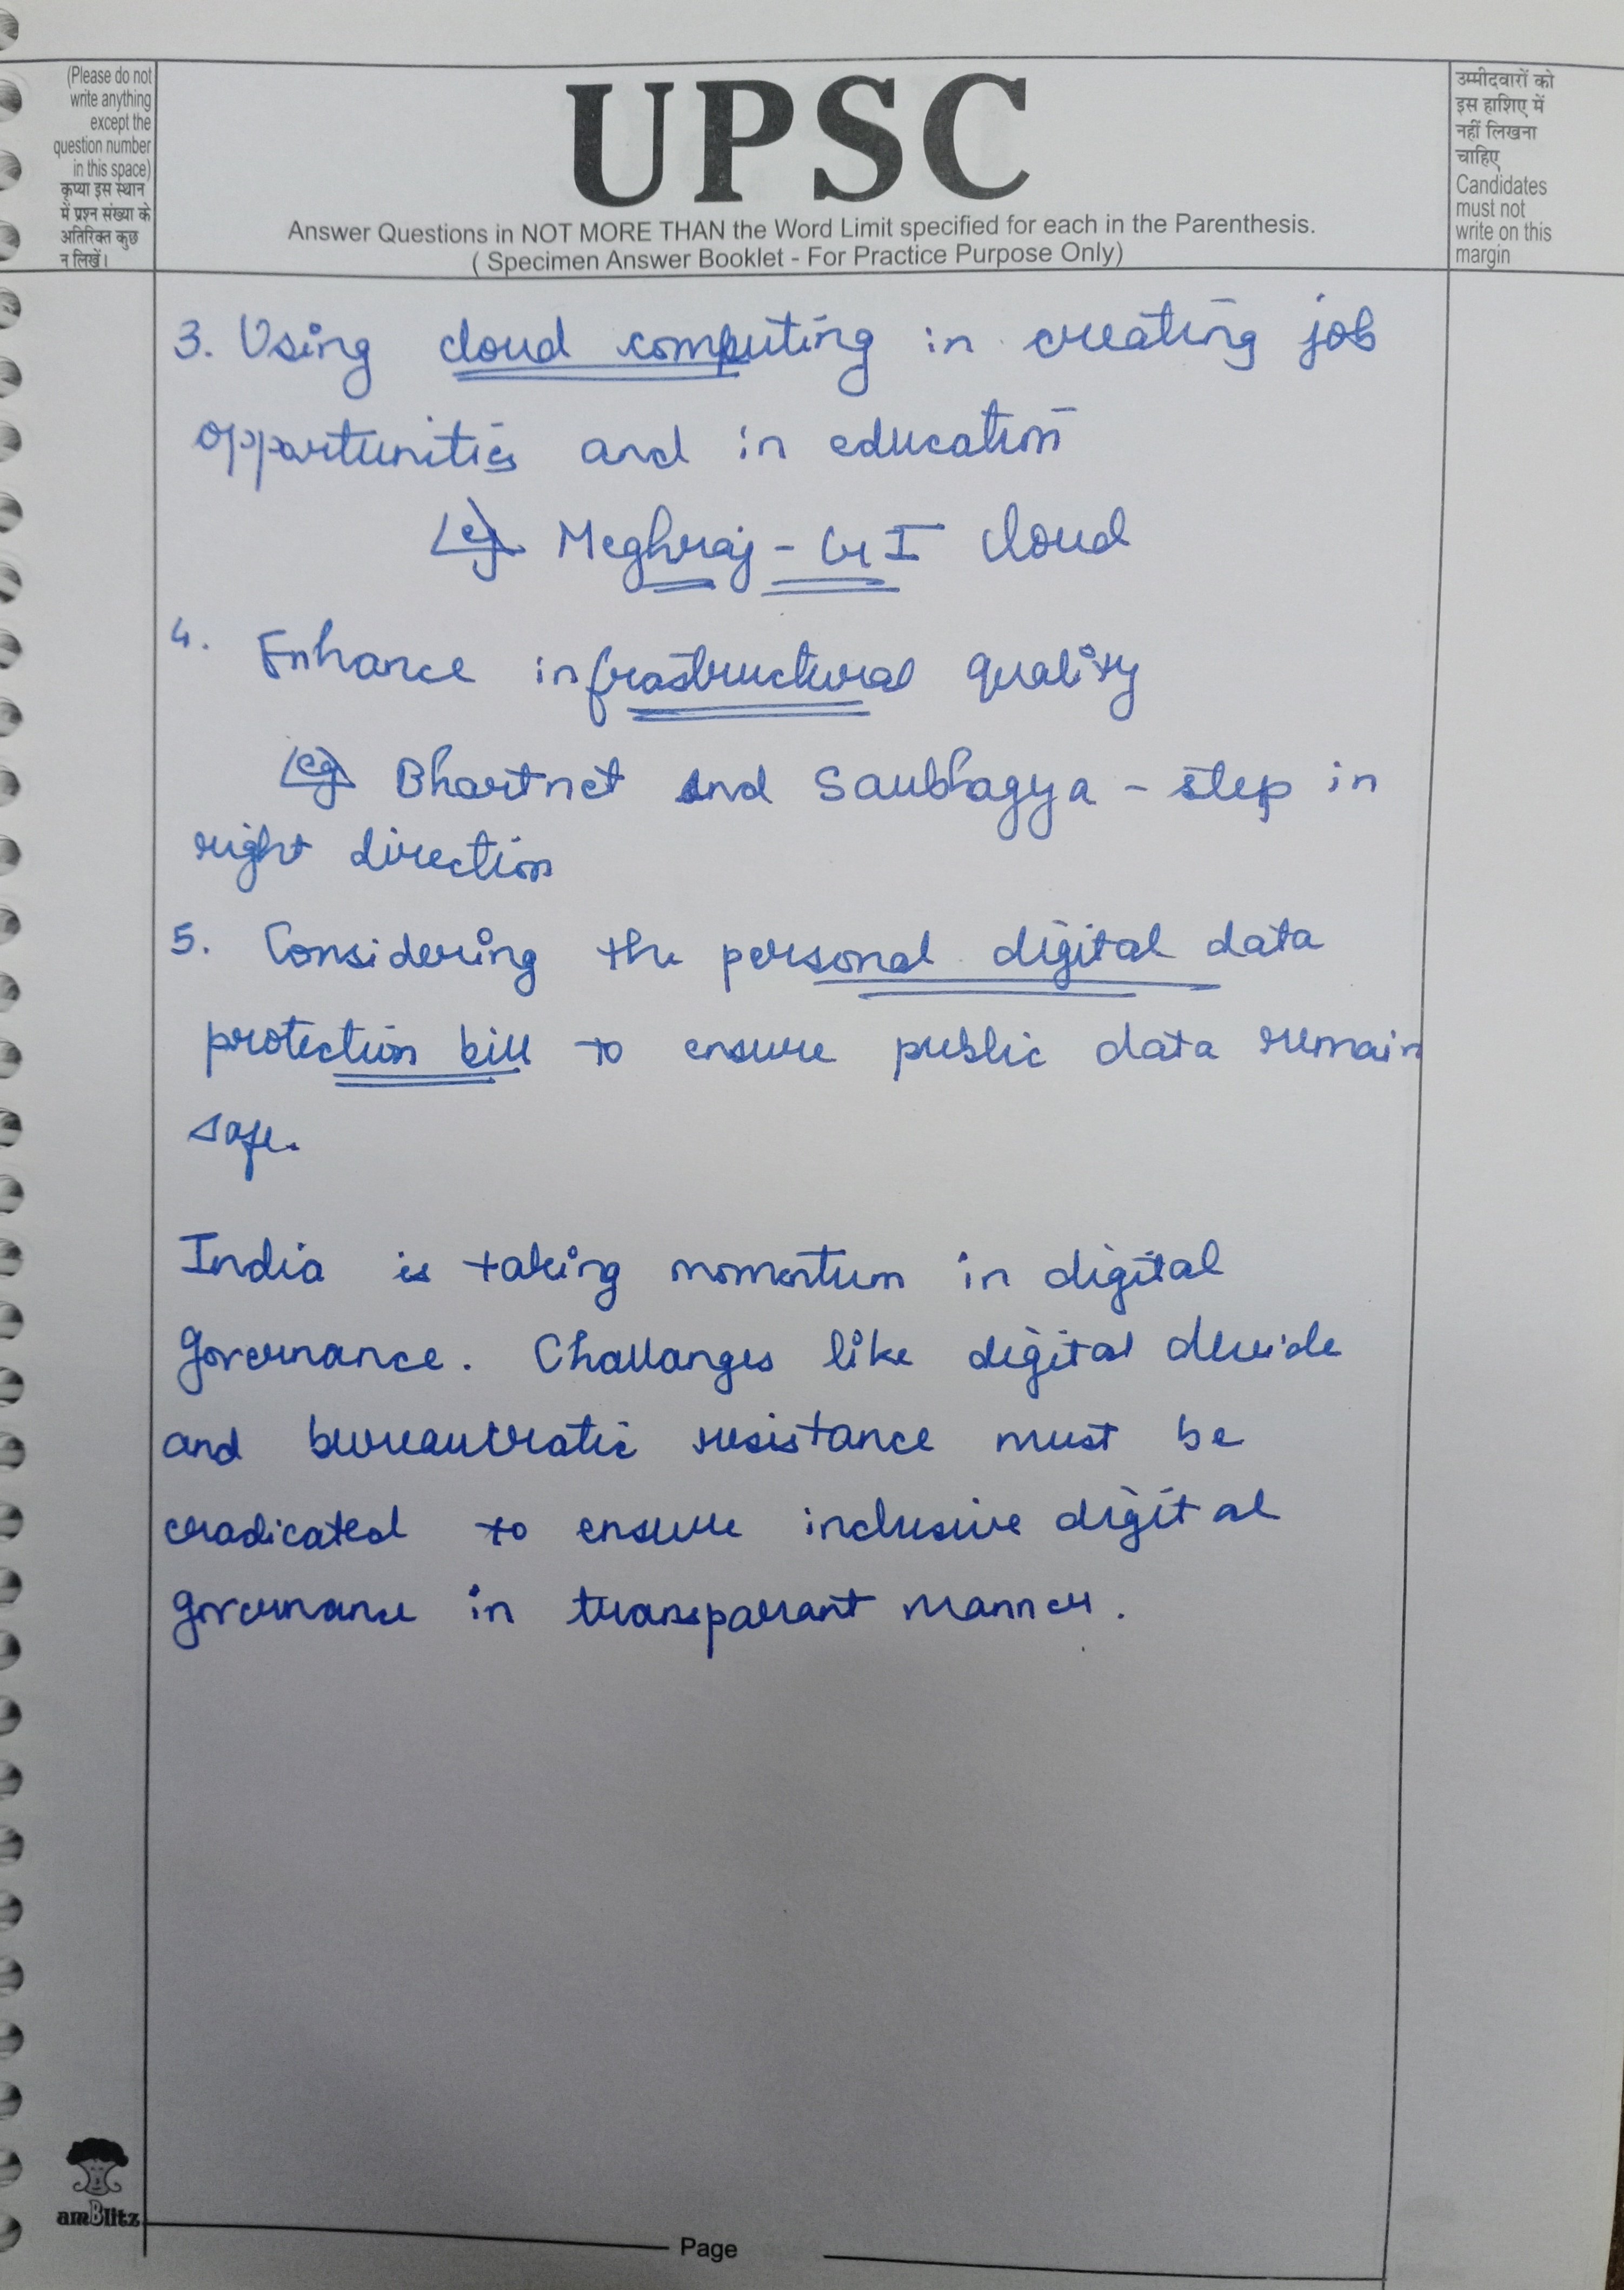 (Please do not
write anything
except the
question number
in this space)
कृप्या इस स्थान
में प्रश्न संख्या के
अतिरिक्त कुछ
न लिखें।
UPSC
Answer Questions in NOT MORE THAN the Word Limit specified for each in the Parenthesis.
( Specimen Answer Booklet - For Practice Purpose Only)
उम्मीदवारों को
इस हाशिए में
नहीं लिखना
चाहिए
Candidates
must not
write on this
margin
3. Using cloud computing in creating job
opportunities and in education
eg Meghraj - GI cloud
4. Enhance infrastructural quality
eg Bhartnet and Saubhagya - step in
right direction
5. Considering the personal digital data
protection bill to ensure public data remain
safe.
India is taking momentum in digital
governance. Challanges like digital devide
and bureaucratic resistance must be
eradicated to ensure inclusive digital
governance in transparant manner.
amBlitz
Page